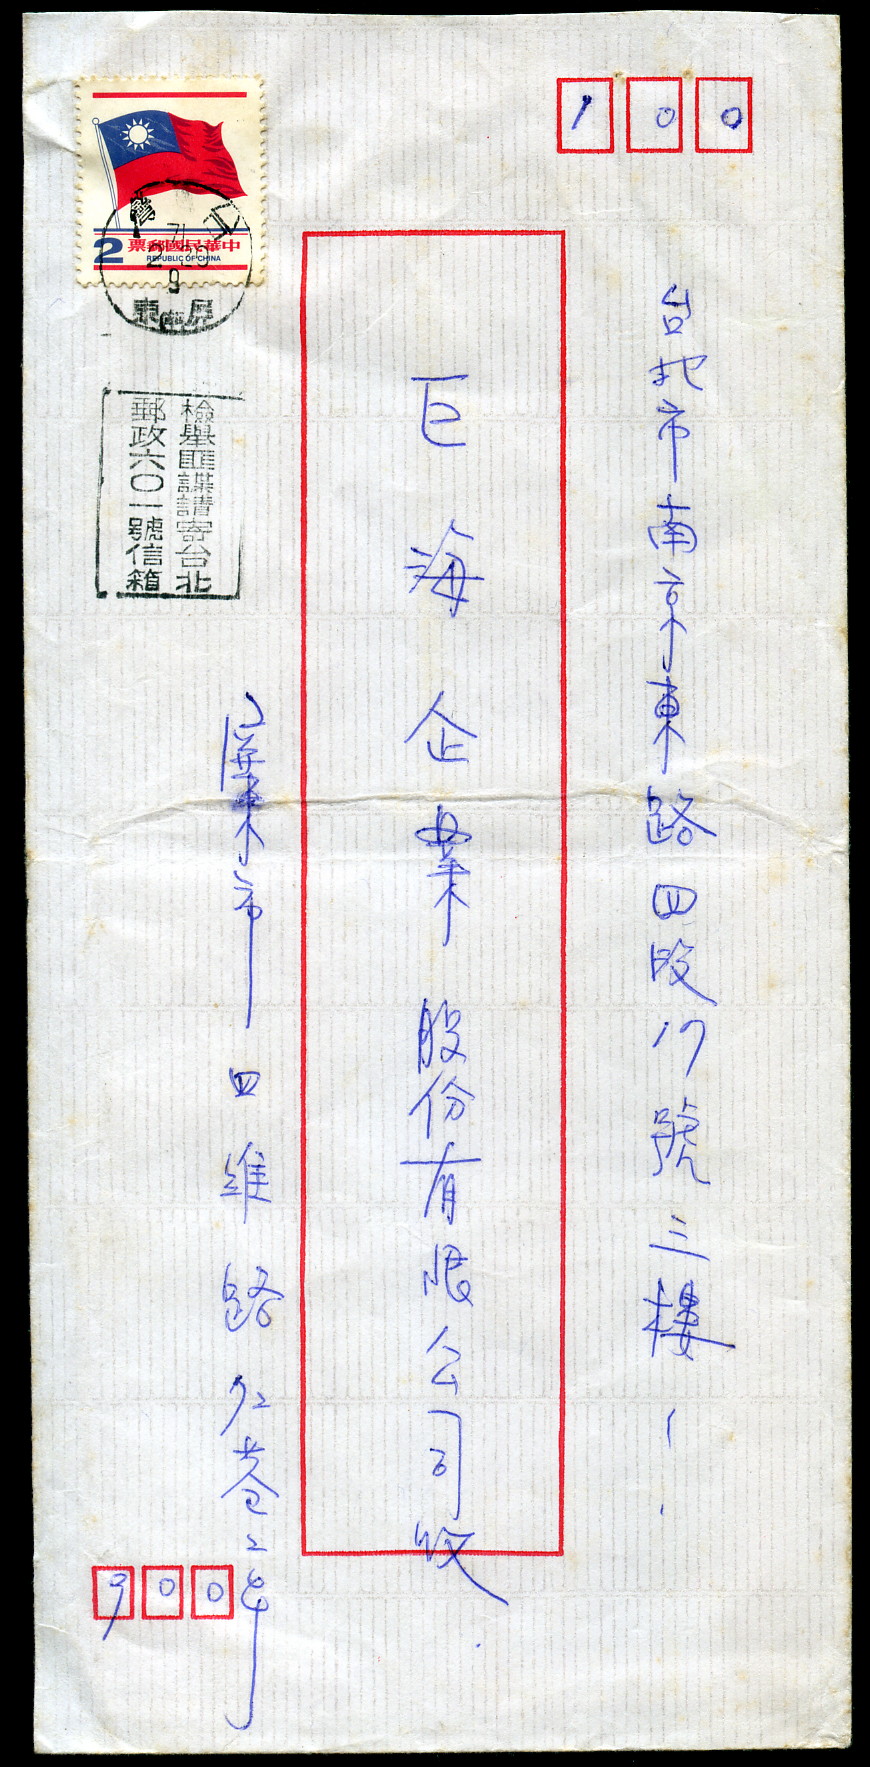 100
台北市南京東路四段17號三樓
巨海企業股份有限公司收
2
中華民國郵票
REPUBLIC OF CHINA
71
9
屏東
檢舉匪諜請寄台北
郵政六〇一號信箱
屏東市四維路仁巷2弄
900